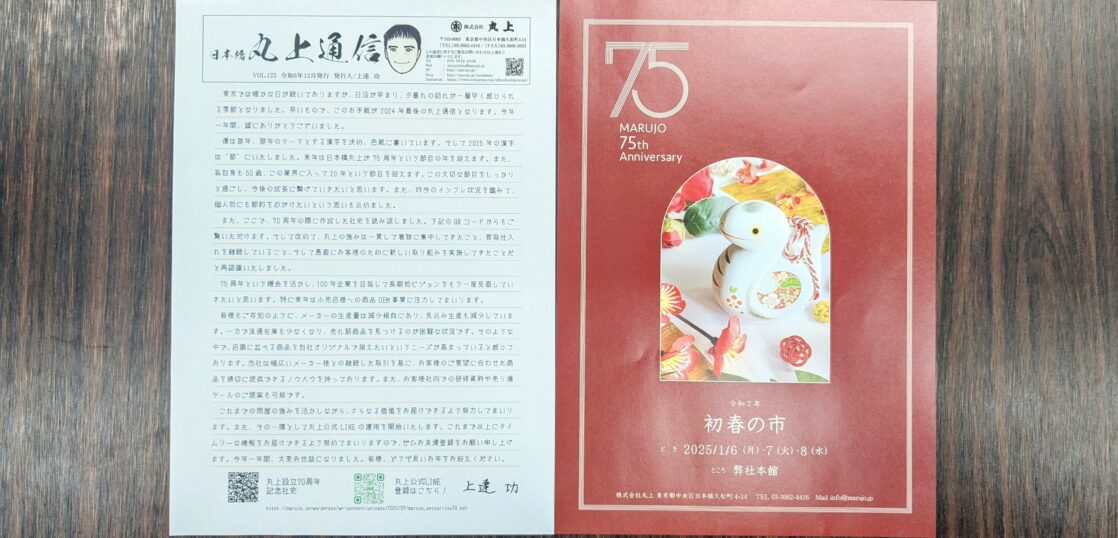 日本橋 丸上通信
VOL.123 令和6年12月発行 発行人/上達 功
株式会社 丸上
〒103-0005 東京都中央区日本橋久松町4-14
(TEL)03-3662-4416
東京では暖かな日が続いておりますが、日没が早まり、夕暮れの訪れが一層早く感じられ
る季節となりました。早いもので、このお手紙が2024年最後の丸上通信となります。今年
一年間、誠にありがとうございました。
僕は毎年、翌年のテーマとする漢字を決め、色紙に書いています。そして2025年の漢字
は“節”にいたしました。来年は日本橋丸上が75周年という節目の年を迎えます。また、
私自身も50歳、この業界に入って20年という節目を迎えます。この大切な節目をしっかり
と過ごし、今後の成長に繋げていきたいと思います。また、昨今のインフレ状況を鑑みて、
個人的にも節約を心がけたいという思いも込めました。
また、ここで、70周年の際に作成した社史を読み返しました。下記のQRコードからもご
覧いただけます。そして改めて、丸上の強みは一貫して着物に集中してきたこと、買取仕入
れを継続していること、そして愚直にお客様のために新しい取り組みを実施してきたことだ
と再認識いたしました。
75周年という機会を活かし、100年企業を目指して長期的ビジョンをもう一度見直してい
きたいと思います。特に来年は小売店様への商品OEM事業に注力してまいります。
皆様もご存知のように、メーカーの生産量は減少傾向にあり、見込み生産も減少していま
す。一方で流通在庫も少なくなり、売れ筋商品を見つけるのが困難な状況です。そのような
中で、店頭に並べる商品を自社オリジナルで揃えたいというニーズが高まっていると感じて
おります。当社は幅広いメーカー様との継続した取引を基に、お客様のご要望に合わせた商
品を適切に提供できるノウハウを持っております。また、お客様社内での研修資料や売り場
ツールのご提案も可能です。
これまでの問屋の強みを活かしながら、さらなる価値をお届けできるよう努力してまいり
ます。また、その一環として丸上公式LINEの運用を開始いたします。これまで以上にタイ
ムリーな情報をお届けできるよう努めてまいりますので、ぜひお友達登録をお願い申し上げ
ます。今年一年間、大変お世話になりました。皆様、どうぞ良いお年をお迎えください。
丸上設立70周年
記念社史
丸上公式LINE
登録はこちら!
上達 功
75
MARUJO
75th
Anniversary
令和7年
初春の市
とき 2025/1/6(月)・7(火)・8(水)
ところ 弊社本館
株式会社丸上 東京都中央区日本橋久松町4-14 TEL 03-3662-4416 Mail info@marujo.jp